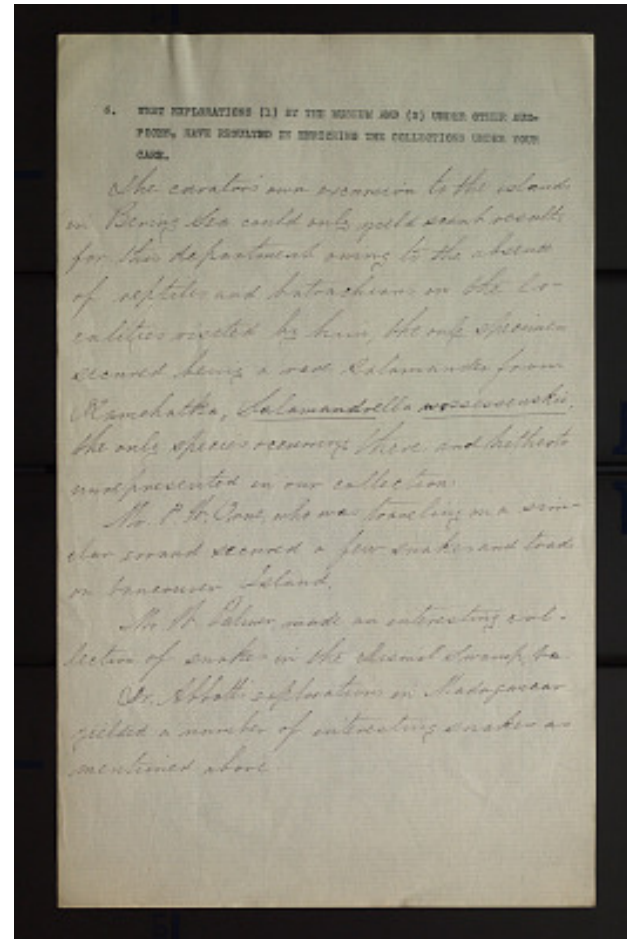 6. WHAT EXPLORATIONS (1) BY THE MUSEUM AND (2) UNDER OTHER AUS-
PICES, HAVE RESULTED IN ENRICHING THE COLLECTIONS UNDER YOUR
CARE.
The curator's own excursion to the islands
in Bering Sea could only yield scant results
for this department owing to the absence
of reptiles and batrachians on the lo-
calities visited by him, the only specimen
secured being a rare salamander from
Kamchatka, Salamandrella wossessenskii,
the only species occurring there and hitherto
unrepresented in our collection.
Mr. P. W. who was traveling on a simi-
lar errand secured a few snakes and toads
on Vancouver Island.
Mr. W. Palmer made an interesting col-
lection of snakes in the Dismal Swamp, Va.
Dr. Abbott's explorations in Madagascar
yielded a number of interesting snakes as
mentioned above.